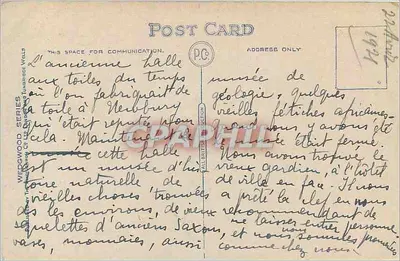 POST CARD
THIS SPACE FOR COMMUNICATION.
P.C.
ADDRESS ONLY
22 Août
1921
WEDGWOOD SERIES
L'ancienne halle
aux toiles du temps
où l'on fabriquait de
la toile à Newbury
qui était réputée pour
cela. Maintenant
cette halle
est un musée d'his
toire naturelle de
vieilles choses trouvées
dans les environs, de vieux
squelettes d'anciens Saxons,
vases, monnaies, aussi
musée de
géologie, quelques
vieilles fétiches africaines
quand nous y avons été
était fermé.
Nous avons trouvé le
vieux gardien, à l'hôtel
de ville en face. Il nous
a prêté la clef en nous
recommandant de
ne laisser entrer personne
et nous nous sommes promenés
comme chez nous.
CPAPHIL